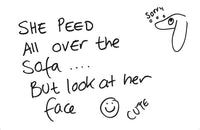 SHE PEED
All over the
Sofa ....
But look at her
face
CUTE
Sorry